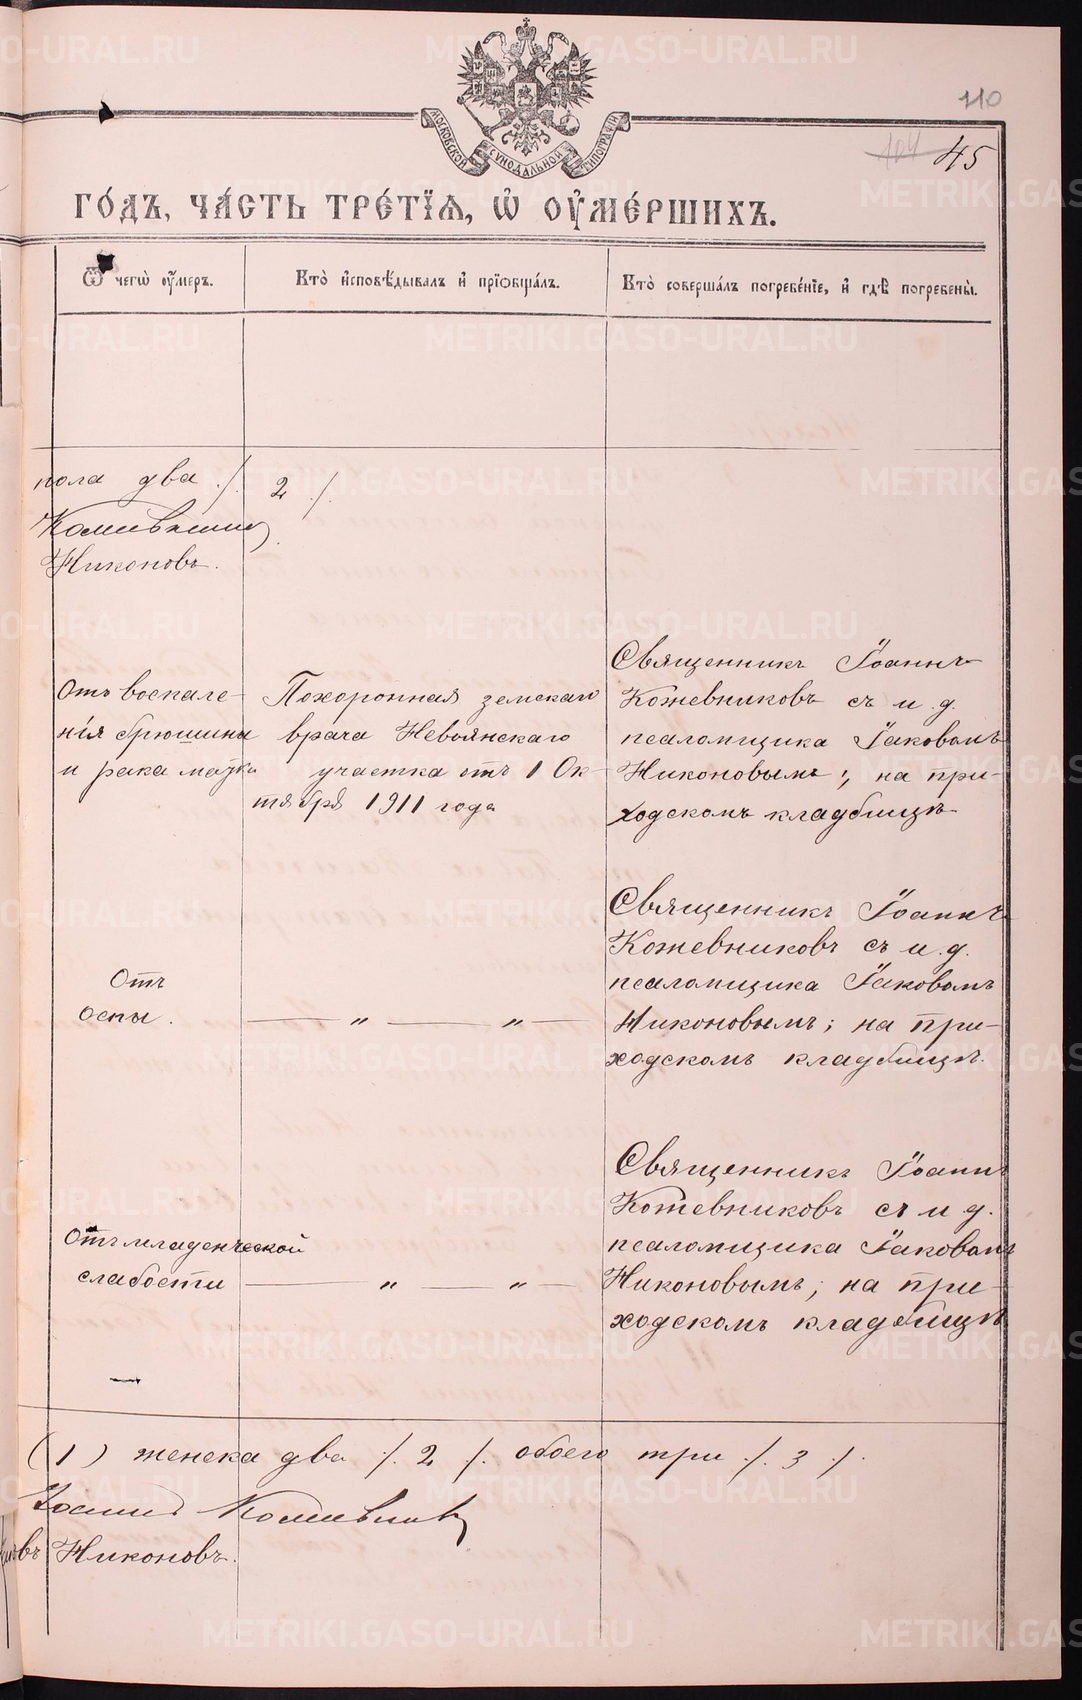 110
104 45
МОСКОВСКОЙ СѴНОДАЛЬНОЙ ТИПОГРАФІИ
ГО́ДЪ, ЧА́СТЬ ТРЕ́ТІѦ, Ѡ҆ ОУ҆МЕ́РШИХЪ.
Ѿ чегѡ̀ оу҆́меръ.
Кто̀ и҆сповѣ́дывалъ и҆ прїѻбща́лъ.
Кто̀ соверша́лъ погребе́нїе, и҆ гдѣ̀ погребены̀.
пола два ./. 2 ./.
Кожевников
Никоновъ.
Отъ воспале-
нія брюшины
и рака матки
Похоронная земскаго
врача Невьянскаго
участка отъ 1 Ок-
тября 1911 года
Священникъ Іоаннъ
Кожевниковъ съ и. д.
псаломщика Іаковомъ
Никоновымъ; на при-
ходскомъ кладбищѣ
Отъ
оспы.
— „ — „ —
Священникъ Іоаннъ
Кожевниковъ съ и. д.
псаломщика Іаковомъ
Никоновымъ; на при-
ходскомъ кладбищѣ.
Отъ младенческой
слабости
— „ — „ —
Священникъ Іоаннъ
Кожевниковъ съ и. д.
псаломщика Іаковомъ
Никоновымъ; на при-
ходскомъ кладбищѣ
(1) женска два ./. 2 ./. обоего три ./. 3 ./.
Іоаннъ Кожевников
въ Никоновъ.
METRIKI.GASO-URAL.RU